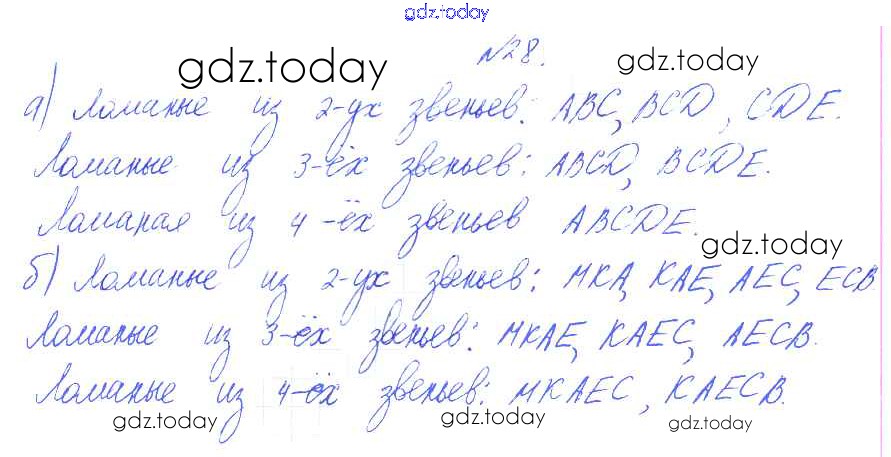 gdz.today
№28.
gdz.today gdz.today
а) Ломаные из 2-ух звеньев: ABC, BCD, CDE.
Ломаные из 3-ёх звеньев: ABCD, BCDE.
Ломаная из 4-ёх звеньев ABCDE.
gdz.today
б) Ломаные из 2-ух звеньев: MKA, KAE, AEC, ECB
Ломаные из 3-ёх звеньев: MKAE, KAEC, AECB.
Ломаные из 4-ёх звеньев: MKAEC, KAECB.
gdz.today gdz.today gdz.today